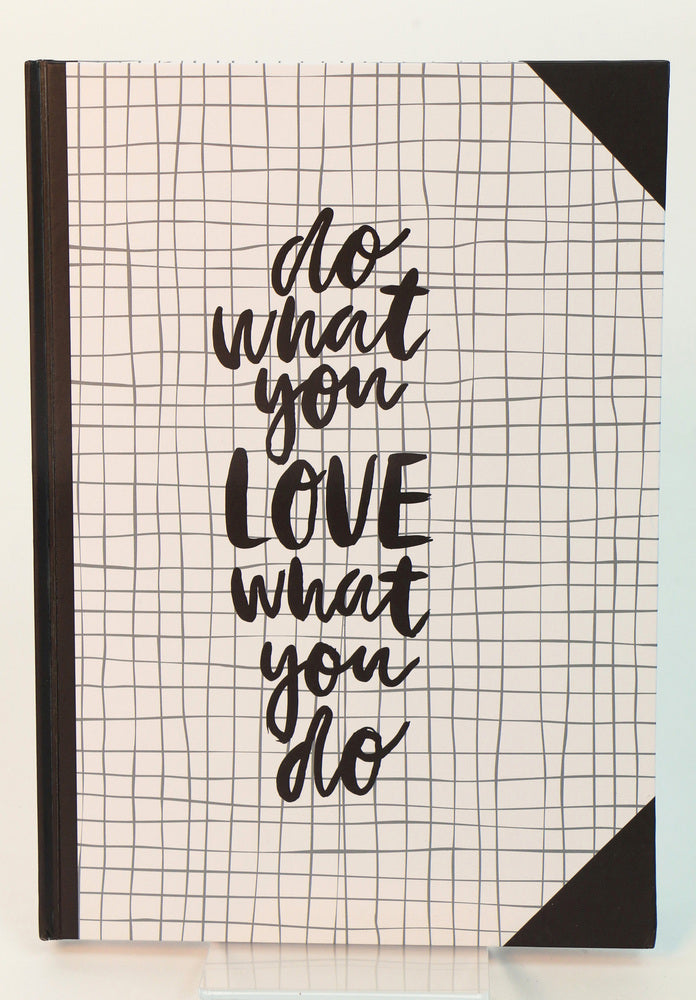 do
what
you
LOVE
what
you
do